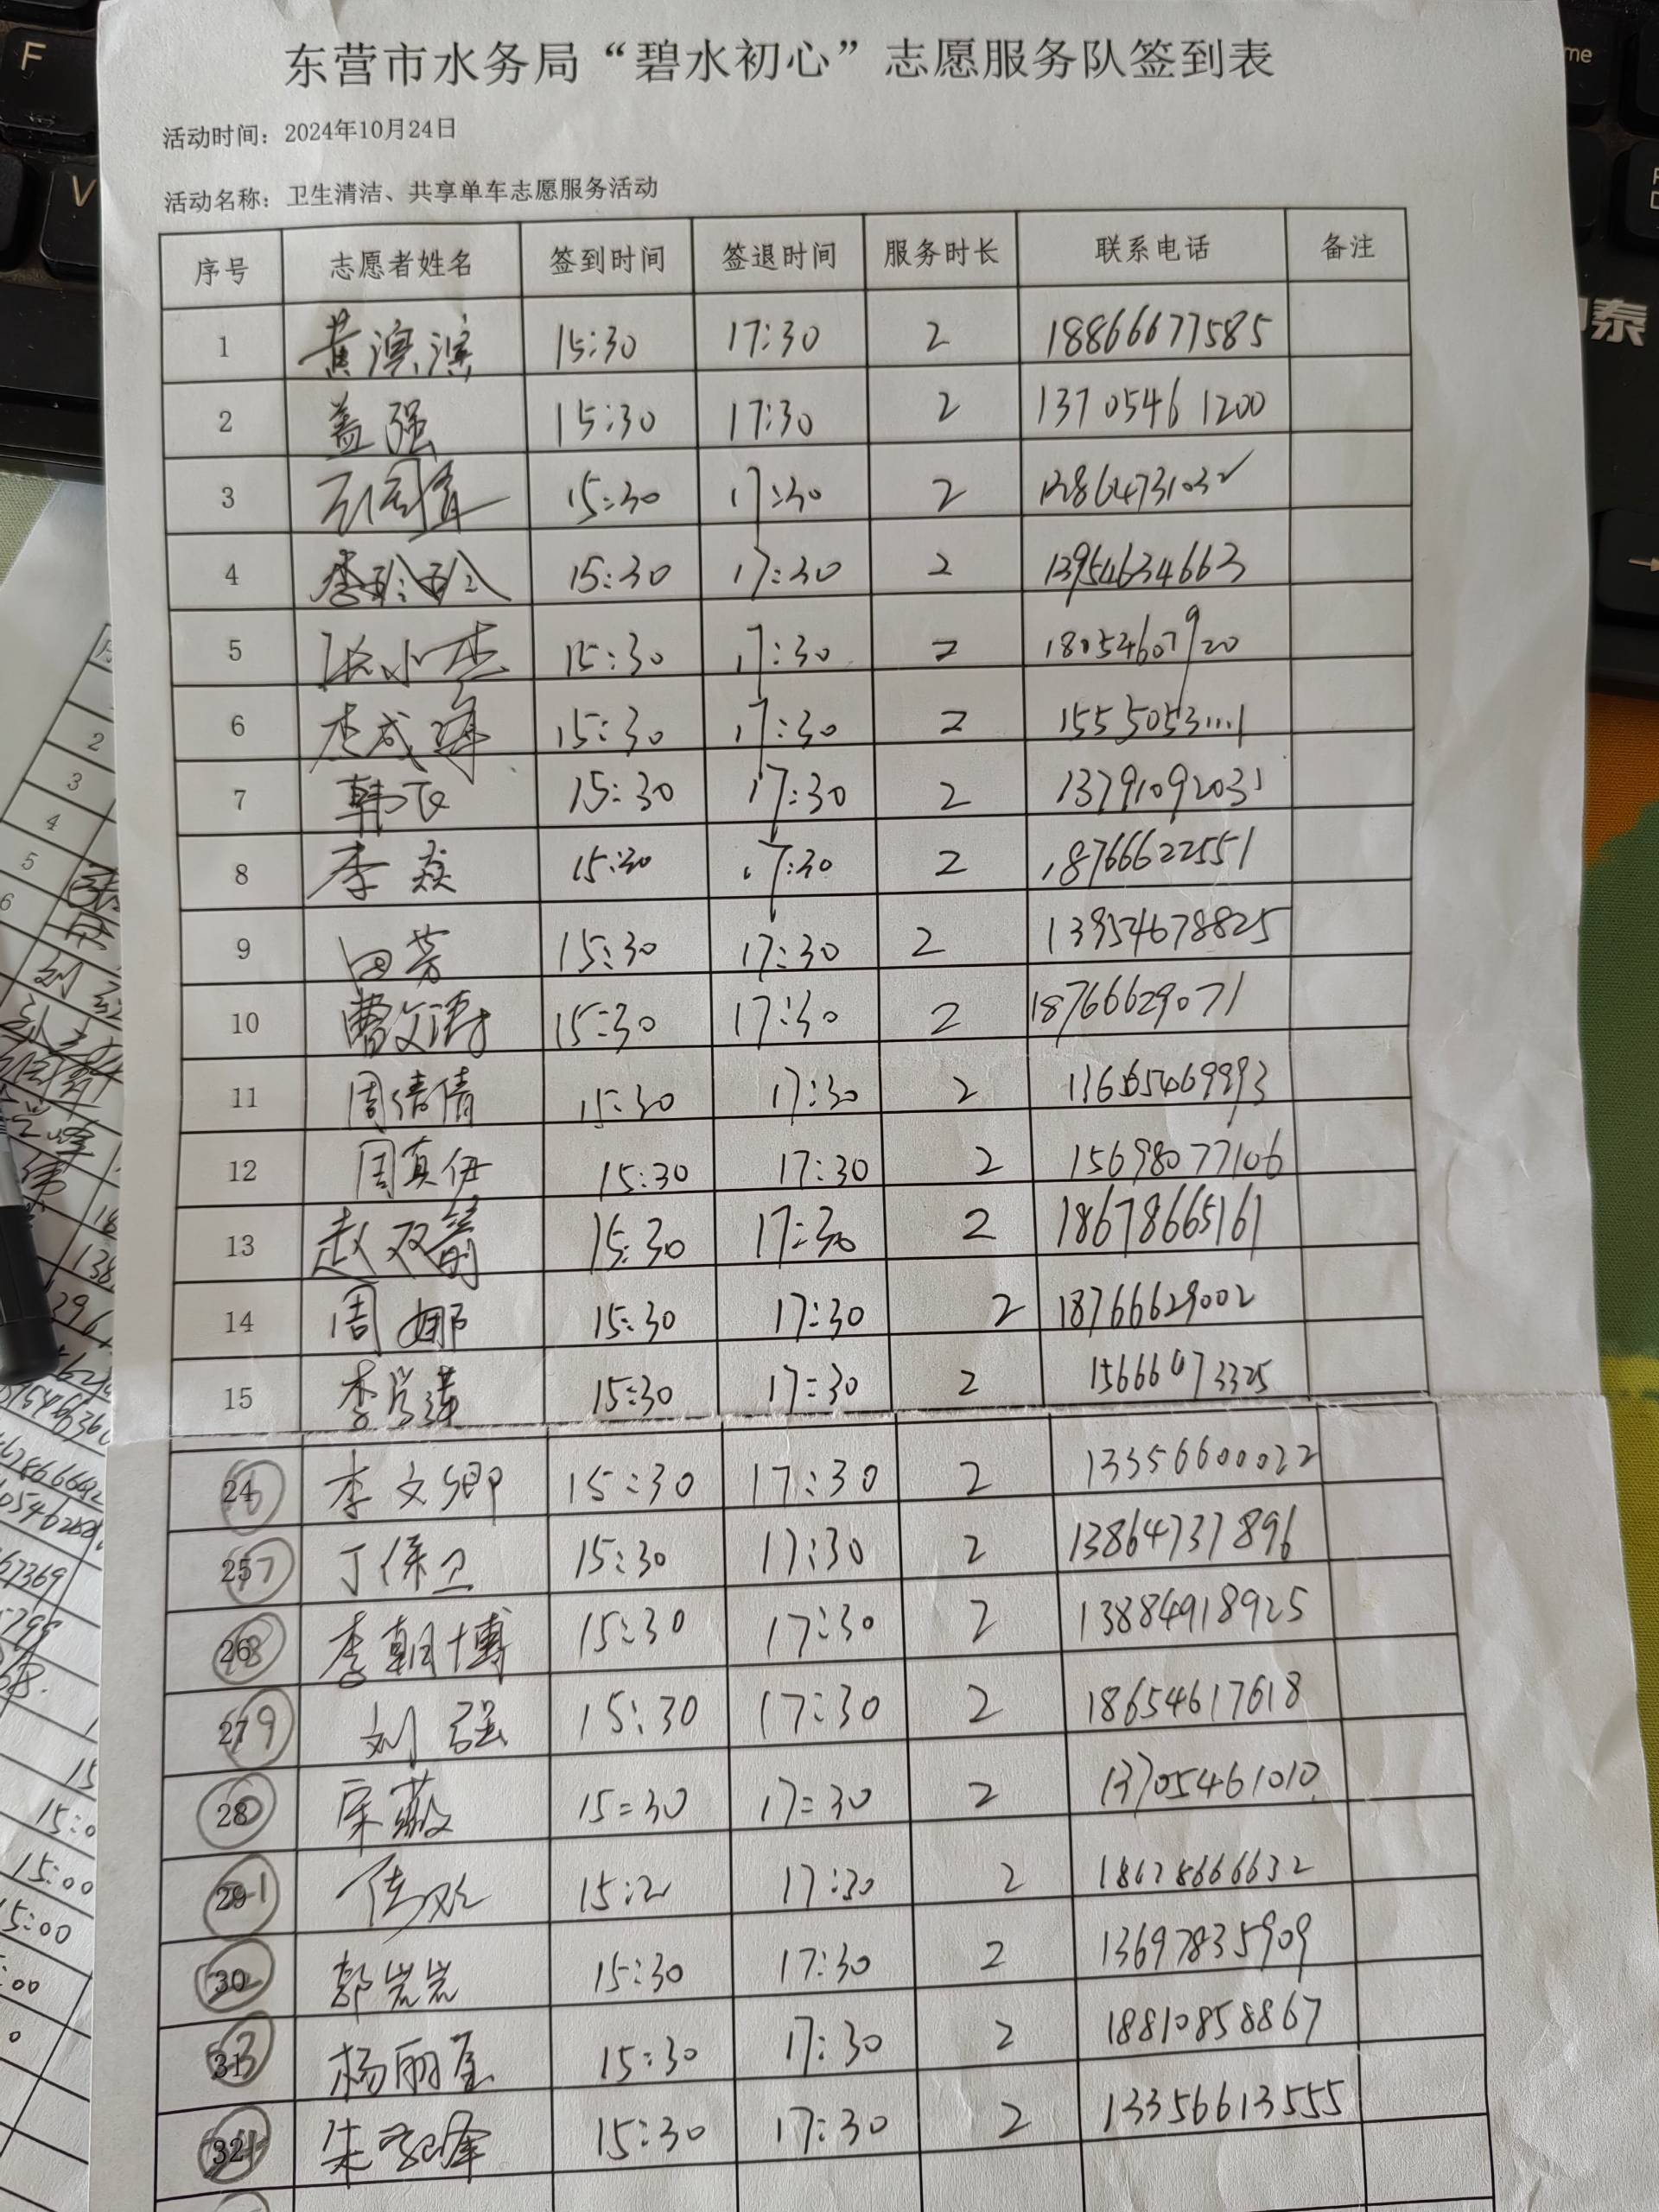 东营市水务局“碧水初心”志愿服务队签到表
活动时间：2024年10月24日
活动名称：卫生清洁、共享单车志愿服务活动
序号 志愿者姓名 签到时间 签退时间 服务时长 联系电话 备注
1 黄滨滨 15:30 17:30 2 18866677585
2 盖强 15:30 17:30 2 13705461200
3 15:30 17:30 2
4 李珍珍 15:30 17:30 2 13954634663
5 张小杰 15:30 17:30 2 18054607920
6 15:30 17:30 2
7 韩飞 15:30 17:30 2
8 李焱 15:30 17:30 2 18766622551
9 田芳 15:30 17:30 2 13954678825
10 曹文涛 15:30 17:30 2 18766629071
11 周倩倩 15:30 17:30 2
12 周真伊 15:30 17:30 2 15698077106
13 赵双 15:30 17:30 2 18678665161
14 周娜 15:30 17:30 2 18766629002
15 15:30 17:30 2 15666073325
24 李文卿 15:30 17:30 2 13356600022
25 丁保卫 15:30 17:30 2 13864737896
26 李朝博 15:30 17:30 2 13884918925
27 刘强 15:30 17:30 2 18654617618
28 宋薇 15:30 17:30 2 13705461010
29 17:30 2 18678666632
30 郭岩岩 15:30 17:30 2 13697835909
31 杨丽 15:30 17:30 2 18810858867
32 朱 15:30 17:30 2 13356613555